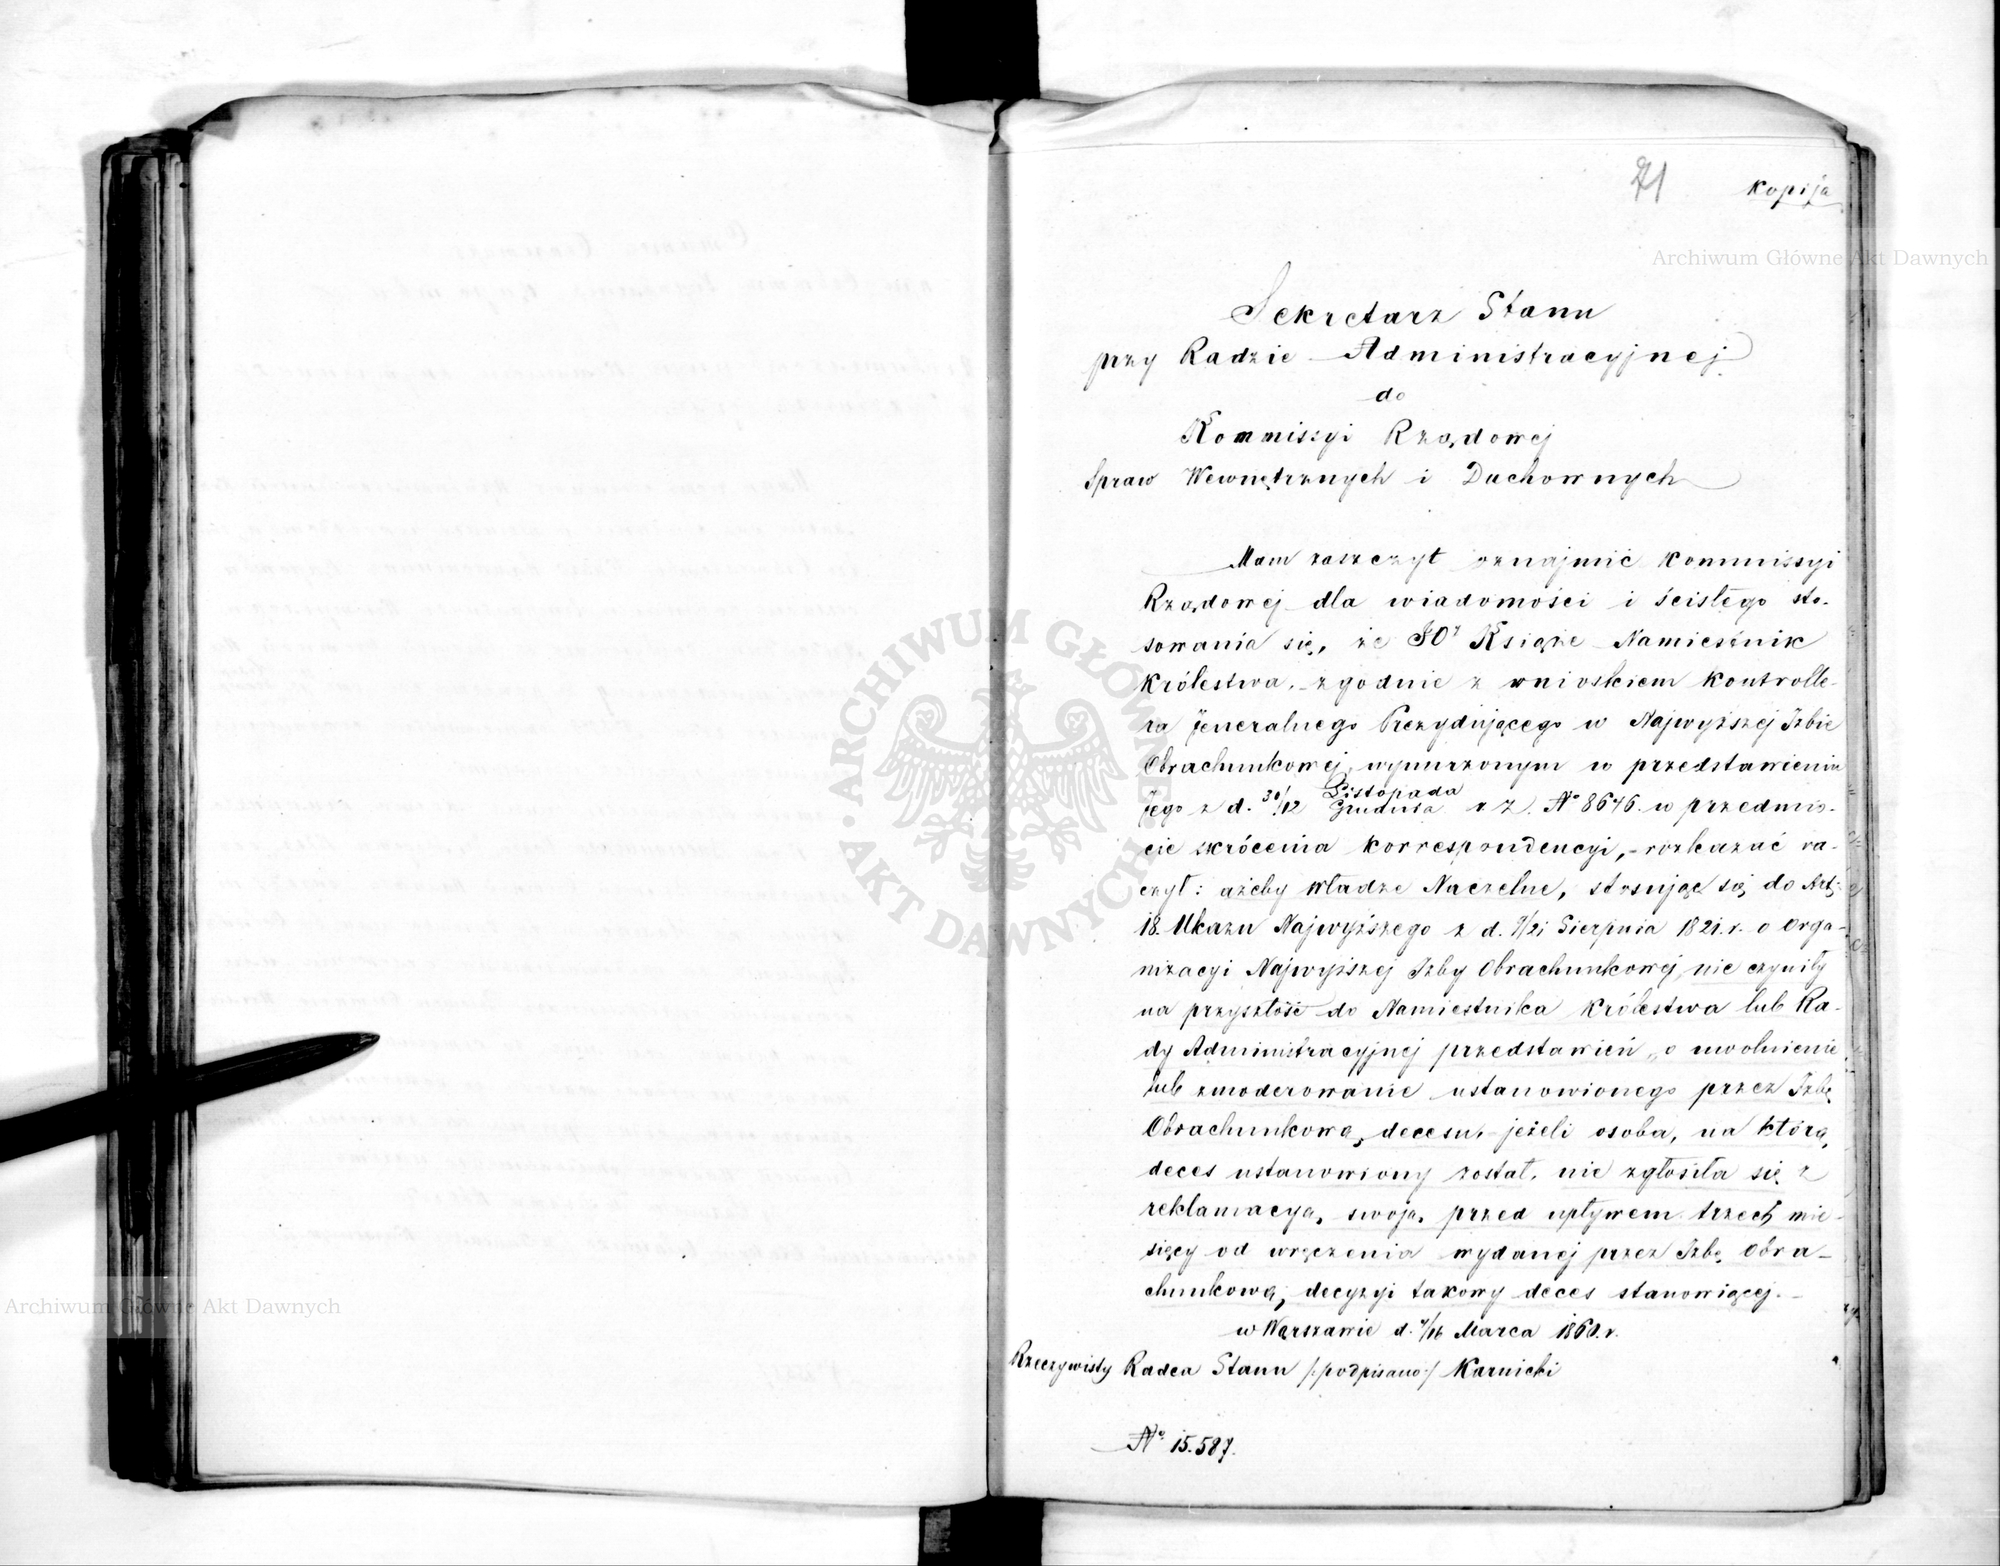 21
kopija
Archiwum Główne Akt Dawnych
Sekretarz Stanu
przy Radzie Administracyjnej
do
Kommissyi Rządowej
Spraw Wewnętrznych i Duchownych
Mam zaszczyt oznajmić Kommissyi
Rządowej dla wiadomości i ścisłego sto-
sowania się, że JO Książe Namiestnik
Królestwa, zgodnie z wnioskiem Kontrolle-
ra Jeneralnego Prezydującego w Najwyższej Izbie
Obrachunkowej, wynurzonym w przedstawieniu
Jego z d. 30/12 Listopada/Grudnia r z. № 8646. w przedmio-
cie skrócenia korrespondencyi, - rozkazać ra-
czył: ażeby Władze Naczelne, stosując się do Art:
18. Ukazu Najwyższego z d. 9/21 Sierpnia 1821. r. o orga-
nizacyi Najwyższej Izby Obrachunkowej, nie czyniły
na przyszłość do Namiestnika Królestwa lub Ra-
dy Administracyjnej przedstawień, o uwolnienie
lub zmoderowanie ustanowionego przez Izbę
Obrachunkową decesu, - jeżeli osoba, na którą
deces ustanowiony został, nie zgłosiła się z
reklamacyą swoją przed upływem trzech mie-
sięcy od wręczenia wydanej przez Izbę Obra-
chunkową, decyzyi takowy deces stanowiącej. -
w Warszawie d. 4/16 Marca 1860. r.
Rzeczywisty Radca Stanu /:podpisano:/ Karnicki
№ 15.587.
ARCHIWUM GŁÓWNE AKT DAWNYCH
Archiwum Główne Akt Dawnych